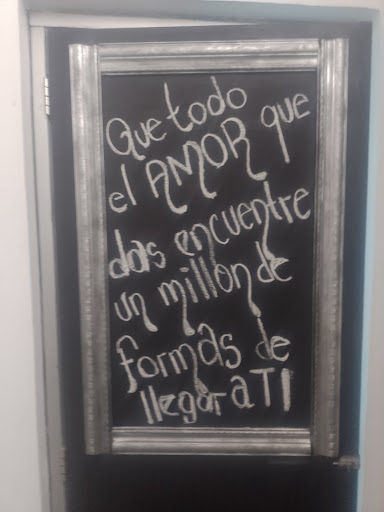 Que todo
el AMOR que
das encuentre
un millon de
formas de
llegar a TI